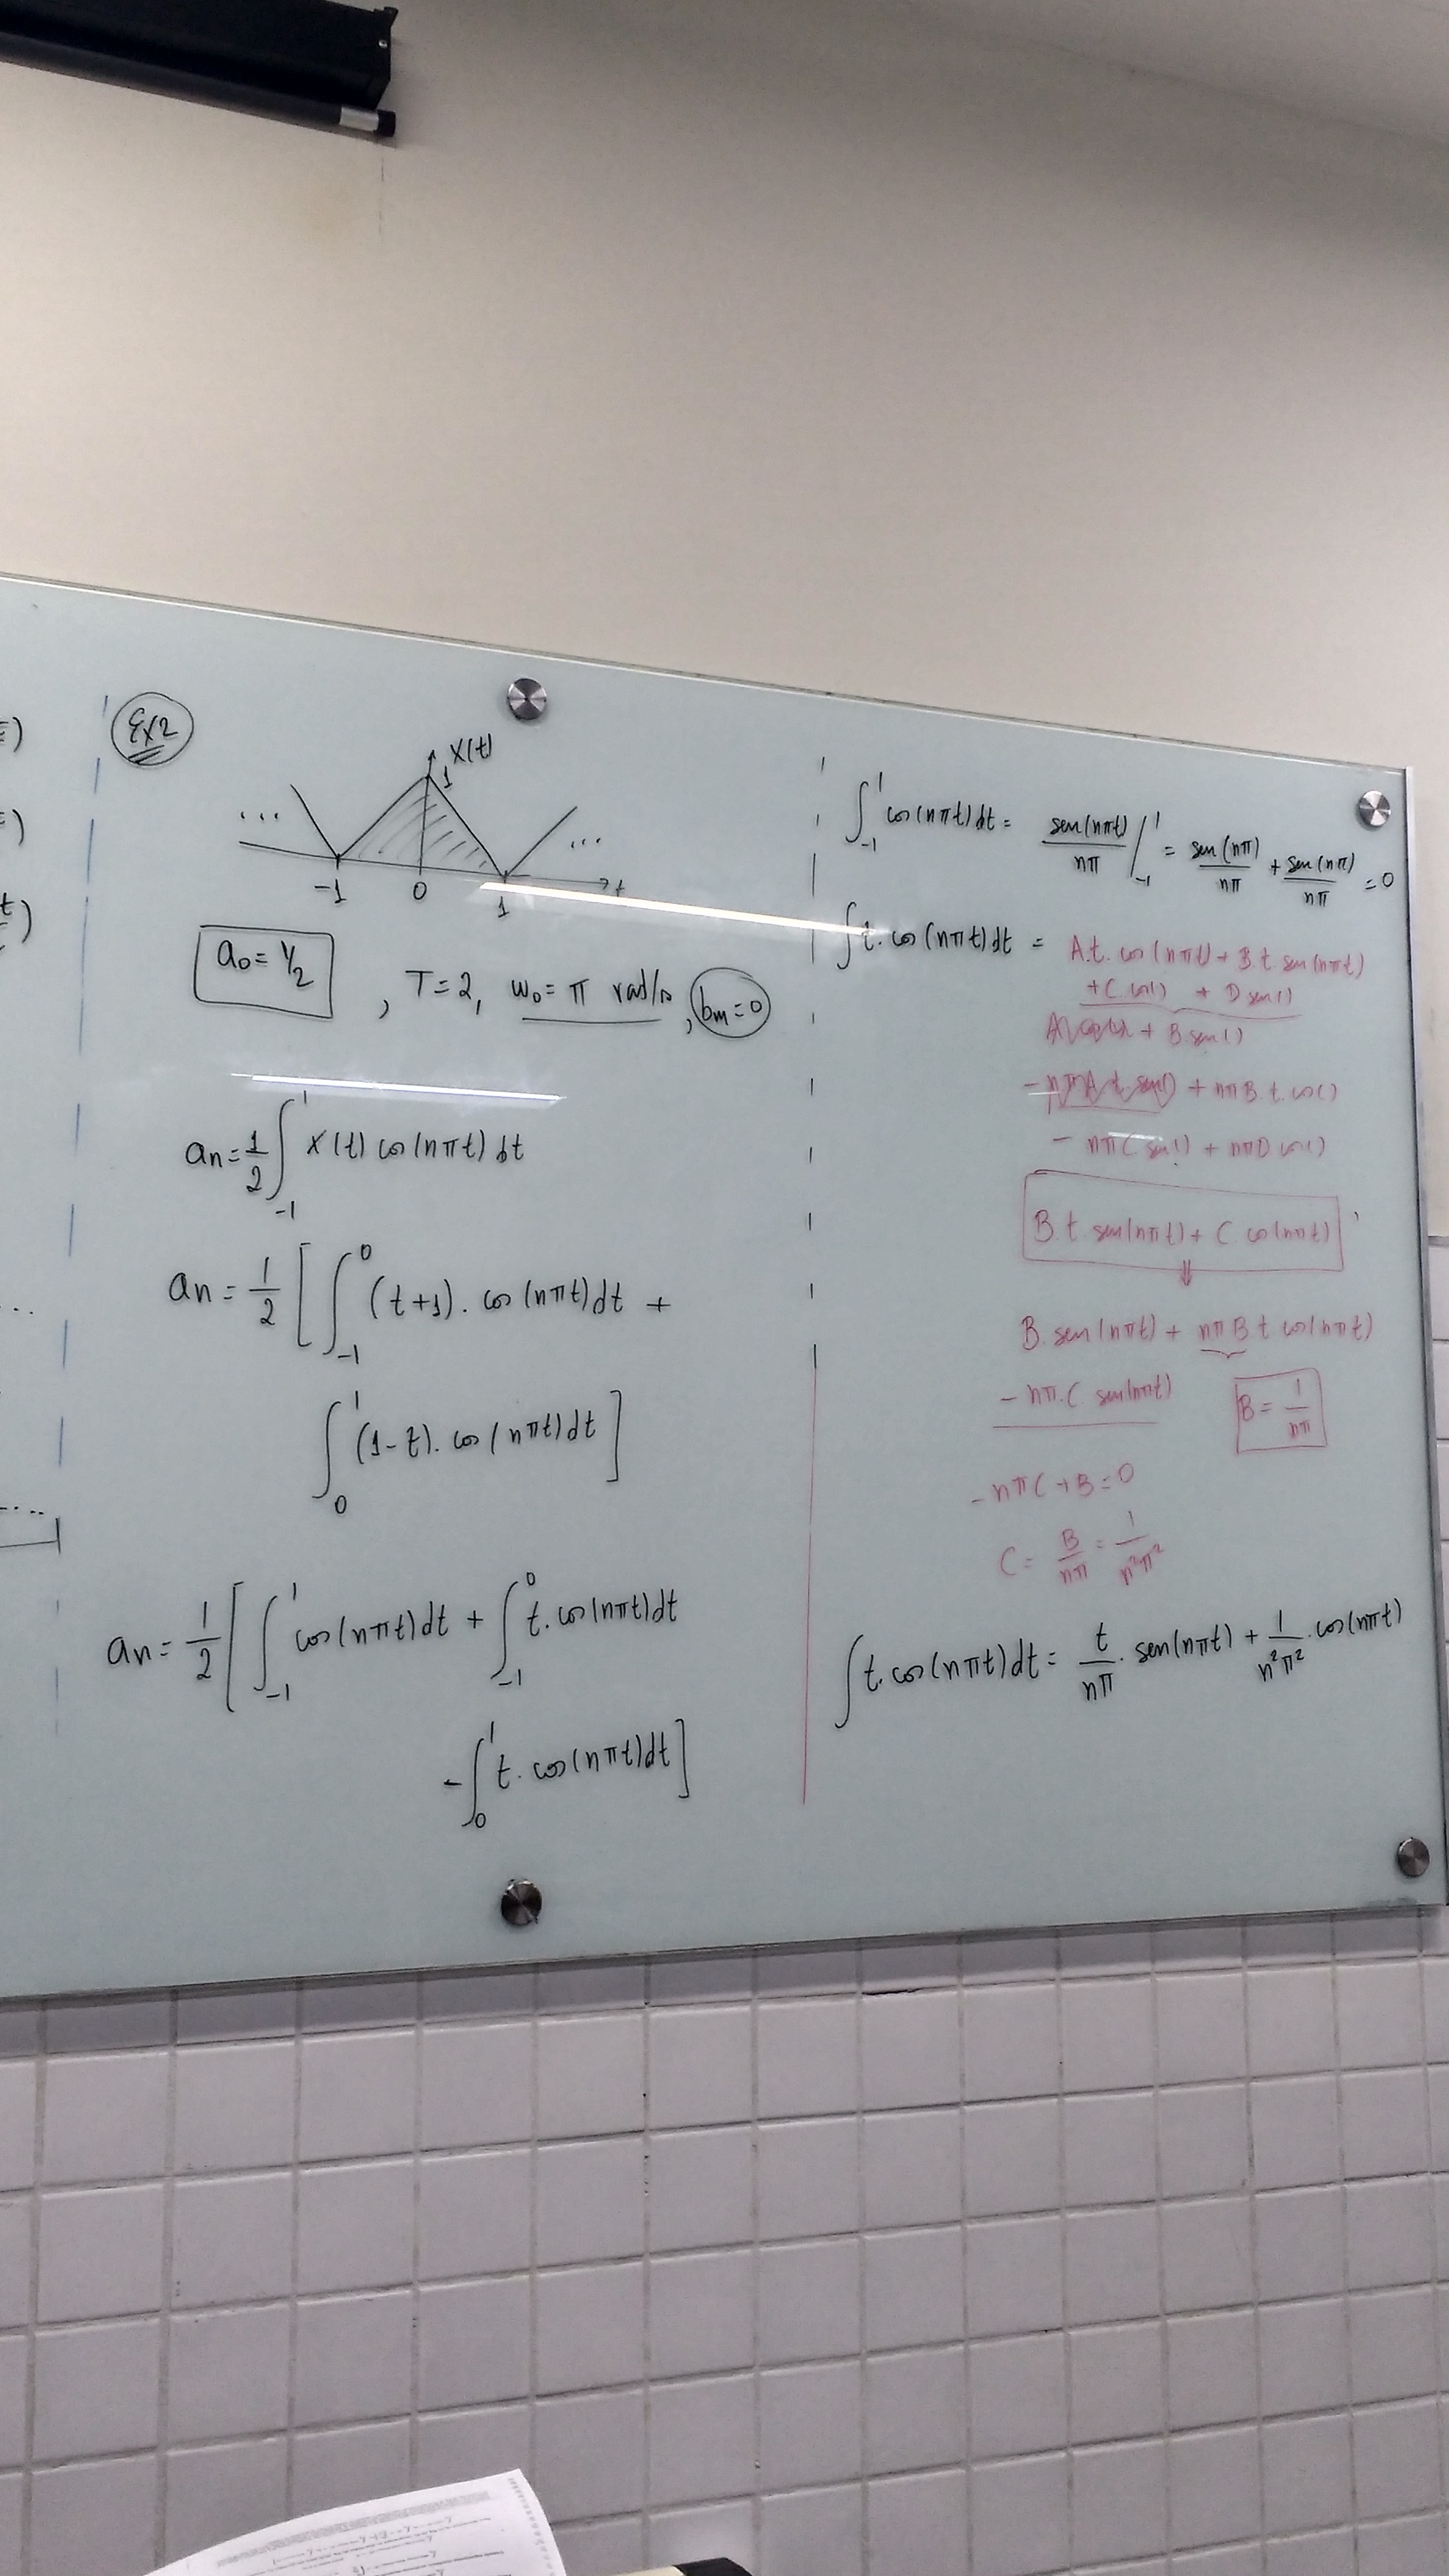 Ex2
X(t)
1
... ...
-1 0 1 t
a₀ = 1/2 , T = 2, ω₀ = π rad/s, bₘ = 0
aₙ = 1/2 ∫₋₁¹ x(t) cos(nπt) dt
aₙ = 1/2 [ ∫₋₁⁰ (t+1). cos(nπt) dt +
∫₀¹ (1-t). cos(nπt) dt ]
aₙ = 1/2 [ ∫₋₁¹ cos(nπt) dt + ∫₋₁⁰ t. cos(nπt) dt
- ∫₀¹ t. cos(nπt) dt ]
∫₋₁¹ cos(nπt) dt = sen(nπt)/nπ |₋₁¹ = sen(nπ)/nπ + sen(nπ)/nπ = 0
∫ t. cos(nπt) dt = A.t. cos(nπt) + B.t. sen(nπt)
+ C. cos( ) + D sen( )
A cos( ) + B. sen( )
- nπA t. sen( ) + nπB. t. cos( )
- nπC sen( ) + nπD cos( )
B. t. sen(nπt) + C. cos(nπt)
⇓
B. sen(nπt) + nπB t cos(nπt)
- nπ.C sen(nπt) B = 1/nπ
- nπC + B = 0
C = B/nπ = 1/n²π²
∫ t. cos(nπt) dt = t/nπ . sen(nπt) + 1/n²π² . cos(nπt)